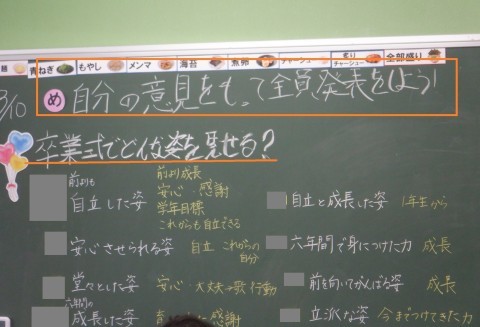 麺 青ねぎ もやし メンマ 海苔 煮卵 チャーシュー 炙りチャーシュー 全部盛り
め 自分の意見をもって全員発表をしよう!
/10
卒業式でどんな姿を見せる?
前よりも
自立した姿
前より成長
安心・感謝
学年目標
これからも自立できる
自立と成長した姿 1年生から
安心させられる姿 自立 これからの自分
六年間で身につけた力 成長
堂々とした姿 安心・大丈夫→歌 行動
前を向いてがんばる姿 成長
六年間の
成長した姿 感謝
立派な姿 今までつけてきた力